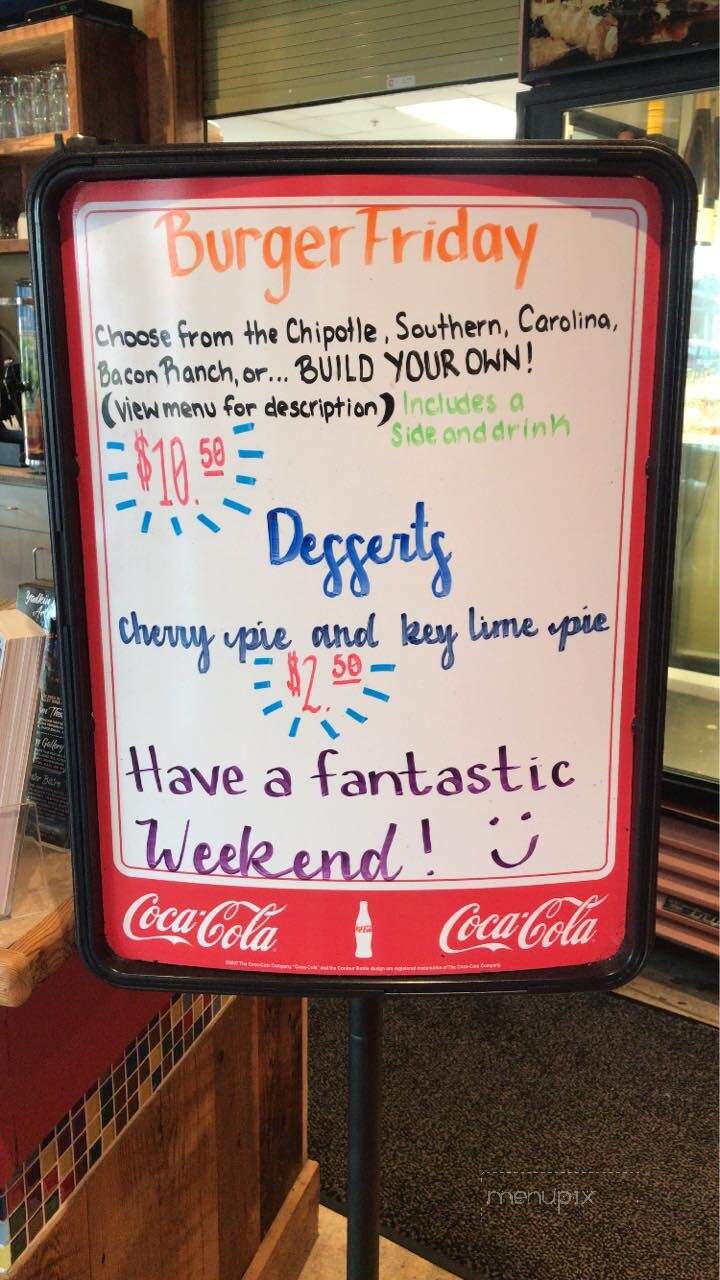 Burger Friday
Choose from the Chipotle, Southern, Carolina,
Bacon Ranch, or... BUILD YOUR OWN!
(View menu for description) Includes a
Side and drink
$10.50
Desserts
Cherry pie and key lime pie
$2.50
Have a fantastic
Weekend!
Coca-Cola Coca-Cola
menupix